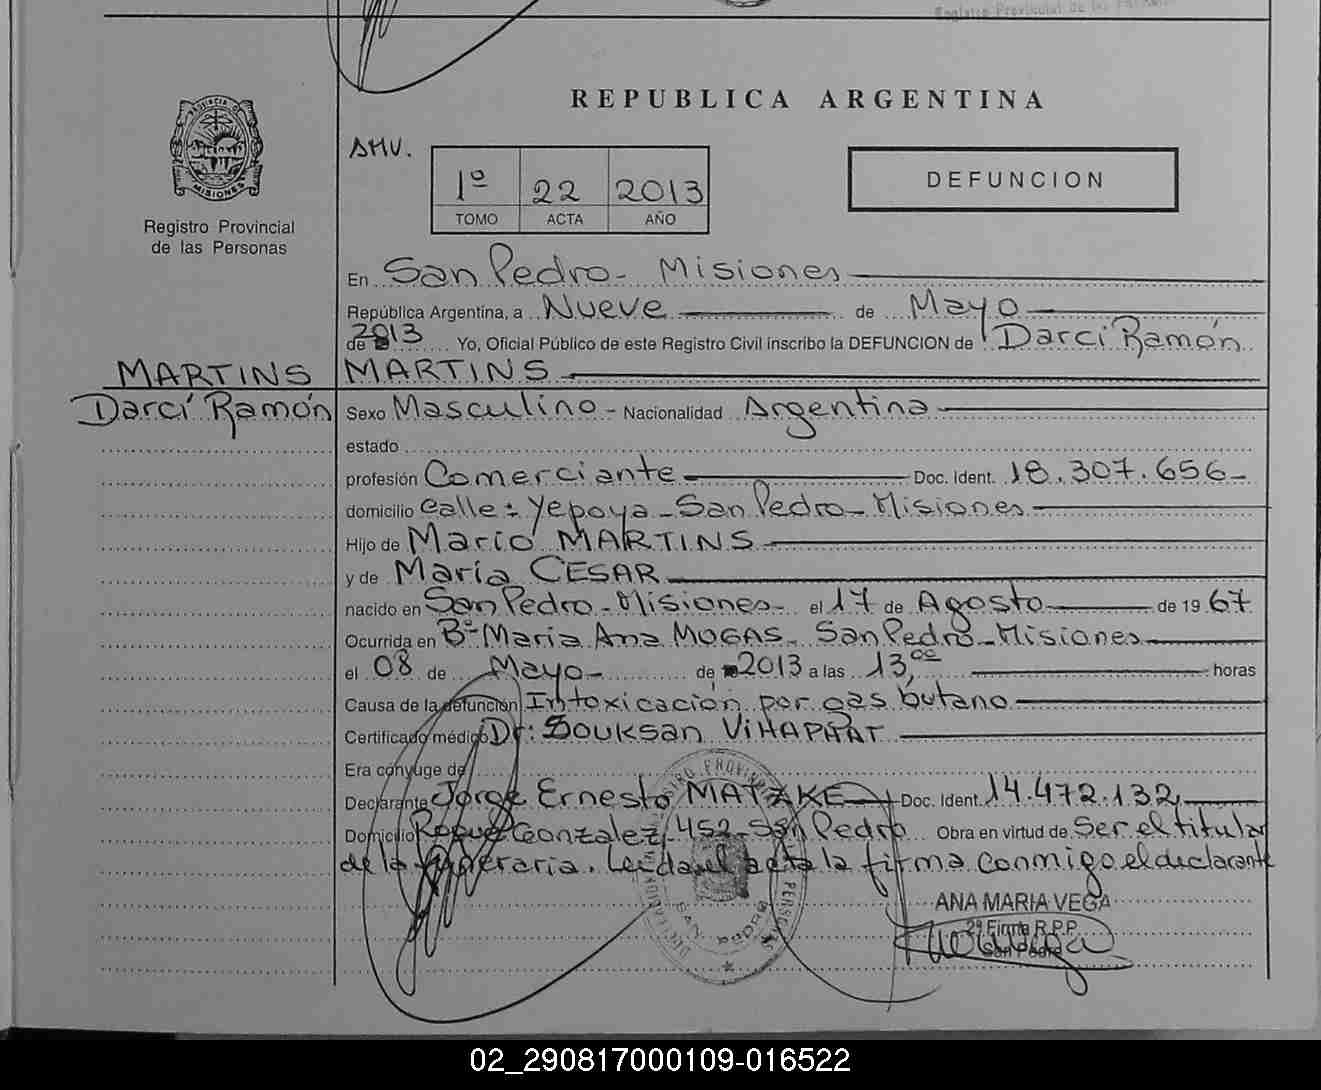 REPUBLICA ARGENTINA
PROVINCIA DE
MISIONES
Registro Provincial
de las Personas
1º 22 2013
TOMO ACTA AÑO
DEFUNCION
En San Pedro - Misiones
República Argentina, a Nueve de Mayo
de 2013 Yo, Oficial Público de este Registro Civil inscribo la DEFUNCION de Darci Ramón
MARTINS MARTINS
Darcí Ramón Sexo Masculino - Nacionalidad Argentina
estado
profesión Comerciante Doc. Ident. 18.307.656-
domicilio calle: Yepoya - San Pedro - Misiones
Hijo de Mario MARTINS
y de María CESAR
nacido en San Pedro - Misiones - el 17 de Agosto de 19 67
Ocurrida en Bº María Ana MOGAS - San Pedro - Misiones
el 08 de Mayo - de 2013 a las 13,00 horas
Causa de la defunción Intoxicación por gas butano
Certificado médico Dr: Souksan
Era cónyuge de
Declarante Jorge Ernesto MATZKE Doc. Ident. 14.472.132
Domicilio Roque Gonzalez 452 - San Pedro Obra en virtud de Ser el titular
de la funeraria. Leída el acta la firma conmigo el declarante
ANA MARIA VEGA
2º Firma R.P.P.
San Pedro
02_290817000109-016522